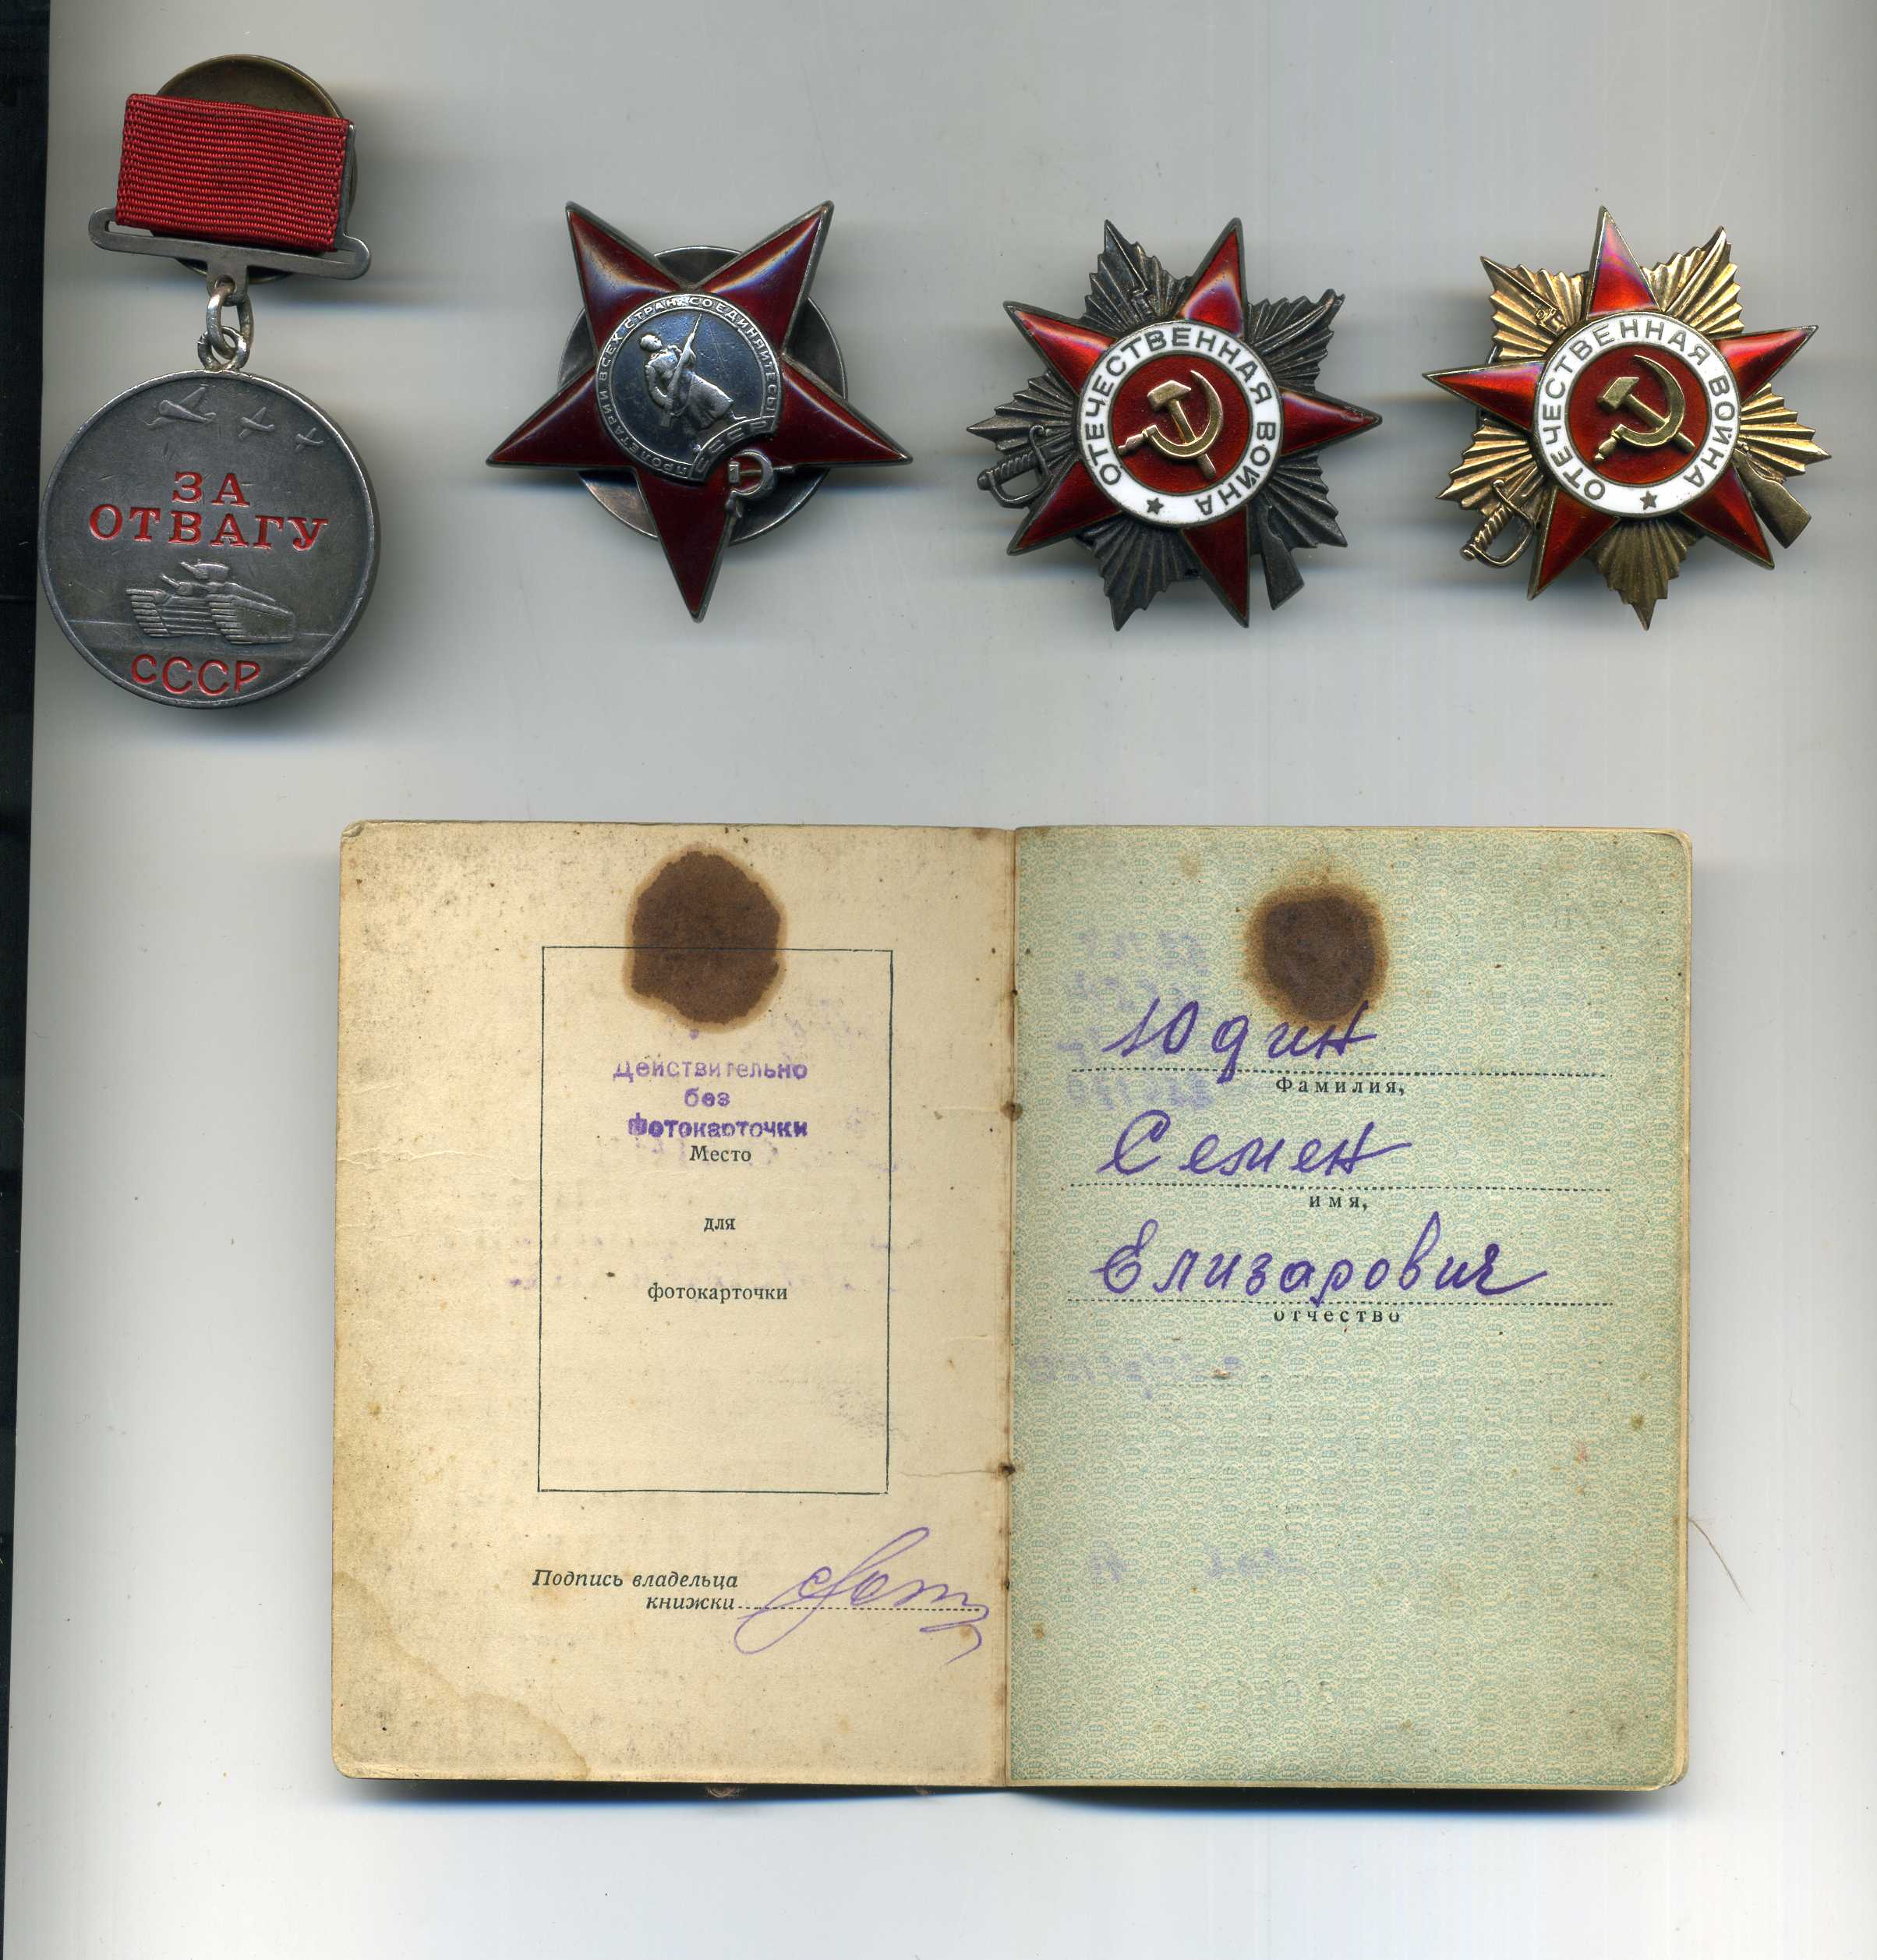 ЗА
ОТВАГУ
СССР
ПРОЛЕТАРИИ ВСЕХ СТРАН, СОЕДИНЯЙТЕСЬ!
СССР
ОТЕЧЕСТВЕННАЯ ВОЙНА
ОТЕЧЕСТВЕННАЯ ВОЙНА
Действительно
без
фотокарточки
Место
для
фотокарточки
Подпись владельца
книжки
Юдин
Фамилия,
Семен
имя,
Елизарович
отчество